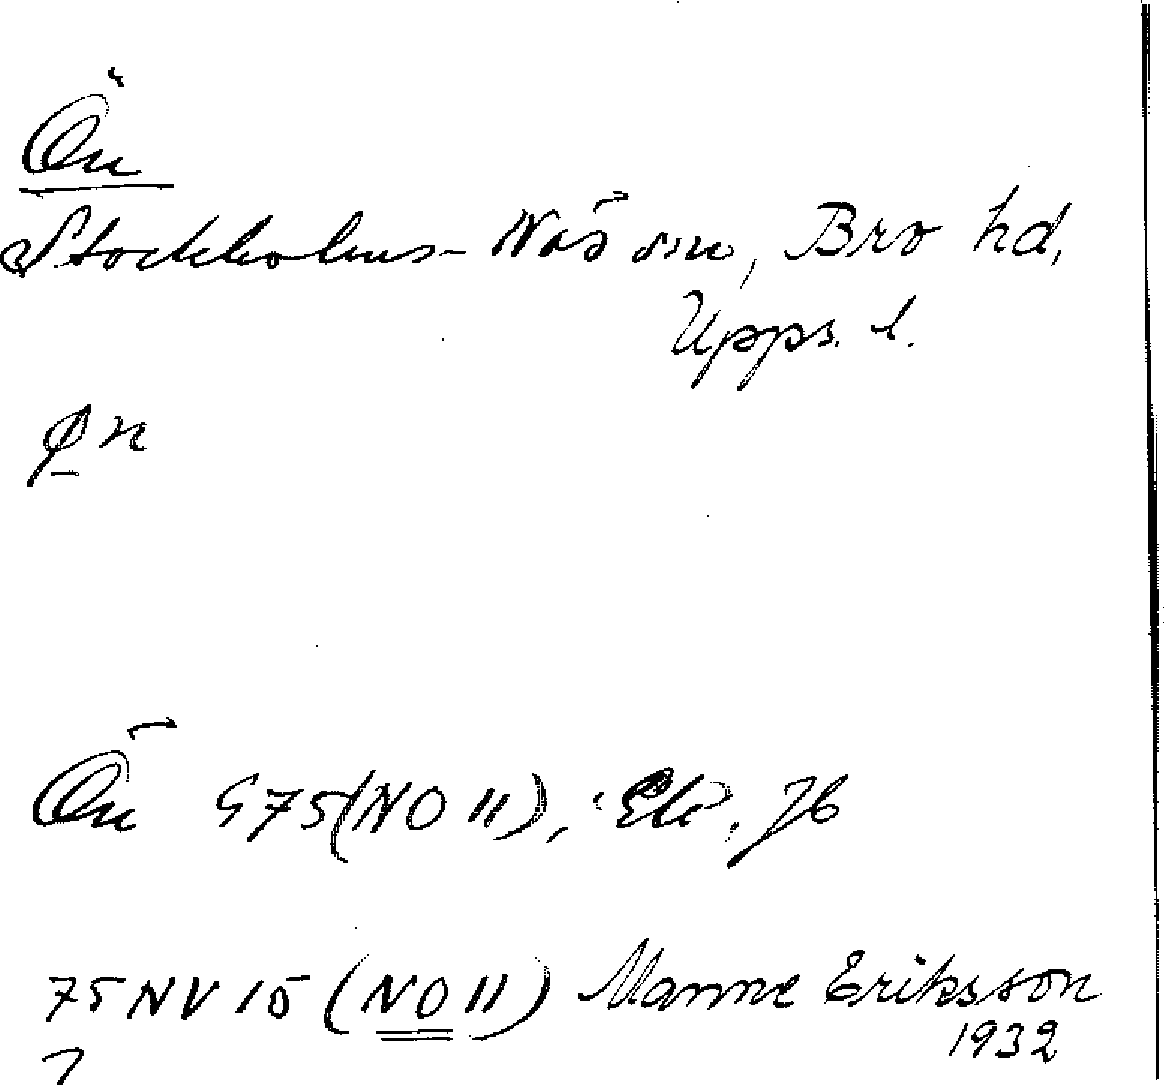 Ön
Stockholms-Näs sn, Bro hd,
Upps. l.
øn
Ön G75(NO 11), Ek., Jb
75 NV 15 (NO 11) Manne Eriksson
1932